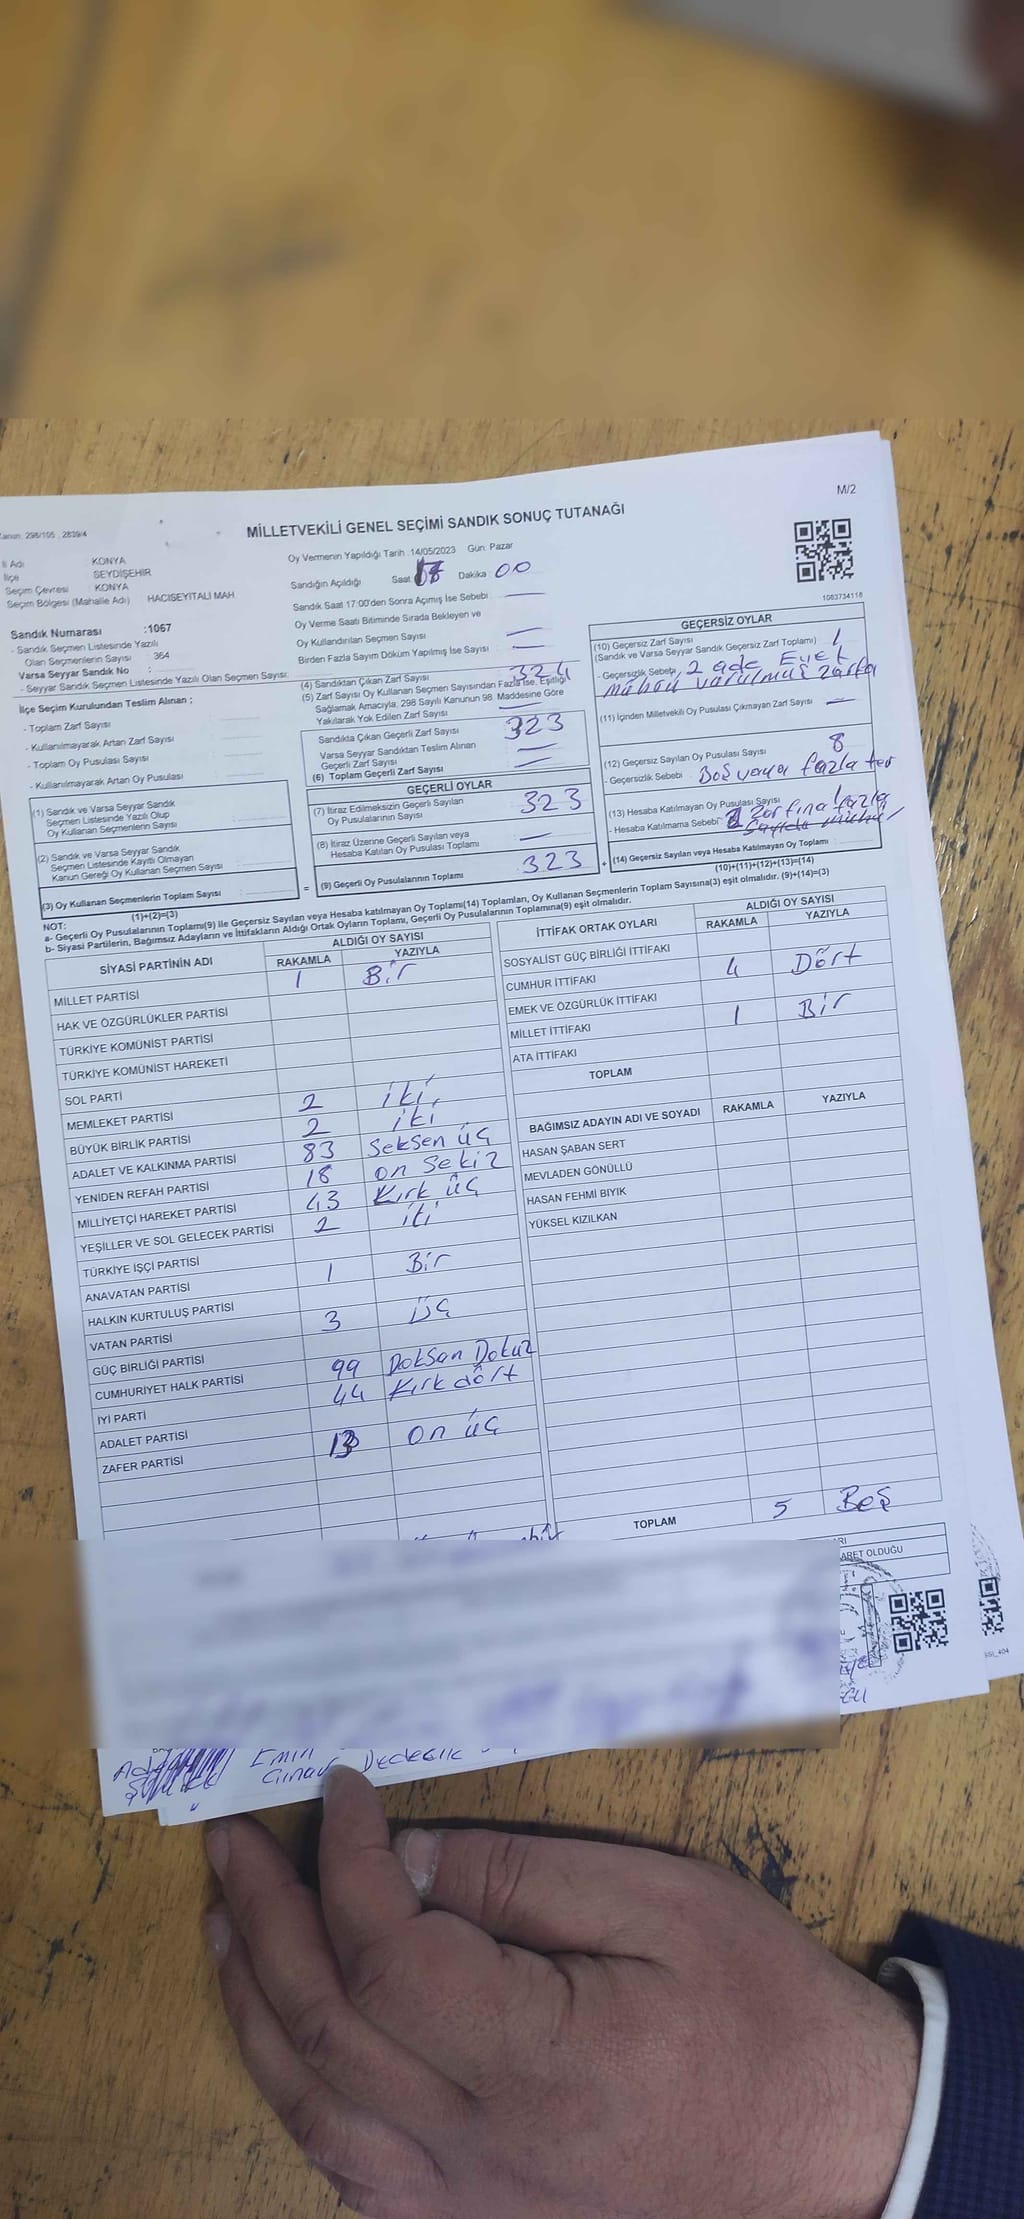 M/2
Kanun: 298/105, 2839/4
MİLLETVEKİLİ GENEL SEÇİMİ SANDIK SONUÇ TUTANAĞI
İl Adı KONYA
İlçe SEYDİŞEHİR
Seçim Çevresi KONYA
Seçim Bölgesi (Mahalle Adı) HACISEYİTALİ MAH
Sandık Numarası :1067
- Sandık Seçmen Listesinde Yazılı
Olan Seçmenlerin Sayısı : 364
Varsa Seyyar Sandık No :
- Seyyar Sandık Seçmen Listesinde Yazılı Olan Seçmen Sayısı:
İlçe Seçim Kurulundan Teslim Alınan ;
- Toplam Zarf Sayısı :
- Kullanılmayarak Artan Zarf Sayısı :
- Toplam Oy Pusulası Sayısı :
- Kullanılmayarak Artan Oy Pusulası :
(1) Sandık ve Varsa Seyyar Sandık
Seçmen Listesinde Yazılı Olup
Oy Kullanan Seçmenlerin Sayısı :
(2) Sandık ve Varsa Seyyar Sandık
Seçmen Listesinde Kayıtlı Olmayan
Kanun Gereği Oy Kullanan Seçmen Sayısı :
(3) Oy Kullanan Seçmenlerin Toplam Sayısı :
(1)+(2)=(3)
Oy Vermenin Yapıldığı Tarih :14/05/2023 Gün: Pazar
Sandığın Açıldığı Saat Dakika 00
Sandık Saat 17:00'den Sonra Açımış İse Sebebi :
Oy Verme Saati Bitiminde Sırada Bekleyen ve
Oy Kullandırılan Seçmen Sayısı :
Birden Fazla Sayım Döküm Yapılmış İse Sayısı :
(4) Sandıktan Çıkan Zarf Sayısı : 324
(5) Zarf Sayısı Oy Kullanan Seçmen Sayısından Fazla İse, Eşitliği
Sağlamak Amacıyla; 298 Sayılı Kanunun 98. Maddesine Göre
Yakılarak Yok Edilen Zarf Sayısı :
Sandıkta Çıkan Geçerli Zarf Sayısı : 323
Varsa Seyyar Sandıktan Teslim Alınan
Geçerli Zarf Sayısı :
(6) Toplam Geçerli Zarf Sayısı :
GEÇERLİ OYLAR
(7) İtiraz Edilmeksizin Geçerli Sayılan
Oy Pusulalarının Sayısı : 323
(8) İtiraz Üzerine Geçerli Sayılan veya
Hesaba Katılan Oy Pusulası Toplamı :
= (9) Geçerli Oy Pusulalarının Toplamı : 323 +
1083734118
GEÇERSİZ OYLAR
(10) Geçersiz Zarf Sayısı
(Sandık ve Varsa Seyyar Sandık Geçersiz Zarf Toplamı) : 1
- Geçersizlik Sebebi : 2 ade Evet
mührü vurulmuş zarfa
(11) İçinden Milletvekili Oy Pusulası Çıkmayan Zarf Sayısı :
(12) Geçersiz Sayılan Oy Pusulası Sayısı : 8
- Geçersizlik Sebebi : Boş veya fazla ter
(13) Hesaba Katılmayan Oy Pusulası Sayısı : 1
- Hesaba Katılmama Sebebi : zarfına fazla
(14) Geçersiz Sayılan veya Hesaba Katılmayan Oy Toplamı :
(10)+(11)+(12)+(13)=(14)
NOT:
a- Geçerli Oy Pusulalarının Toplamı(9) ile Geçersiz Sayılan veya Hesaba katılmayan Oy Toplamı(14) Toplamları, Oy Kullanan Seçmenlerin Toplam Sayısına(3) eşit olmalıdır. (9)+(14)=(3)
b- Siyasi Partilerin, Bağımsız Adayların ve İttifakların Aldığı Ortak Oyların Toplamı, Geçerli Oy Pusulalarının Toplamına(9) eşit olmalıdır.
SİYASİ PARTİNİN ADI ALDIĞI OY SAYISI
RAKAMLA YAZIYLA
MİLLET PARTİSİ 1 Bir
HAK VE ÖZGÜRLÜKLER PARTİSİ
TÜRKİYE KOMÜNİST PARTİSİ
TÜRKİYE KOMÜNİST HAREKETİ
SOL PARTİ
MEMLEKET PARTİSİ 2 iki
BÜYÜK BİRLİK PARTİSİ 2 iki
ADALET VE KALKINMA PARTİSİ 83 Seksen üç
YENİDEN REFAH PARTİSİ 18 on Sekiz
MİLLİYETÇİ HAREKET PARTİSİ 43 Kırk üç
YEŞİLLER VE SOL GELECEK PARTİSİ 2 iki
TÜRKİYE İŞÇİ PARTİSİ
ANAVATAN PARTİSİ 1 Bir
HALKIN KURTULUŞ PARTİSİ
VATAN PARTİSİ 3 Üç
GÜÇ BİRLİĞİ PARTİSİ
CUMHURİYET HALK PARTİSİ 99 Doksan Dokuz
İYİ PARTİ 44 Kırk dört
ADALET PARTİSİ
ZAFER PARTİSİ 13 on üç
İTTİFAK ORTAK OYLARI ALDIĞI OY SAYISI
RAKAMLA YAZIYLA
SOSYALİST GÜÇ BİRLİĞİ İTTİFAKI
CUMHUR İTTİFAKI 4 Dört
EMEK VE ÖZGÜRLÜK İTTİFAKI
MİLLET İTTİFAKI 1 Bir
ATA İTTİFAKI
TOPLAM
BAĞIMSIZ ADAYIN ADI VE SOYADI RAKAMLA YAZIYLA
HASAN ŞABAN SERT
MEVLADEN GÖNÜLLÜ
HASAN FEHMİ BIYIK
YÜKSEL KIZILKAN
TOPLAM 5 Beş
ARET OLDUĞU
Emin